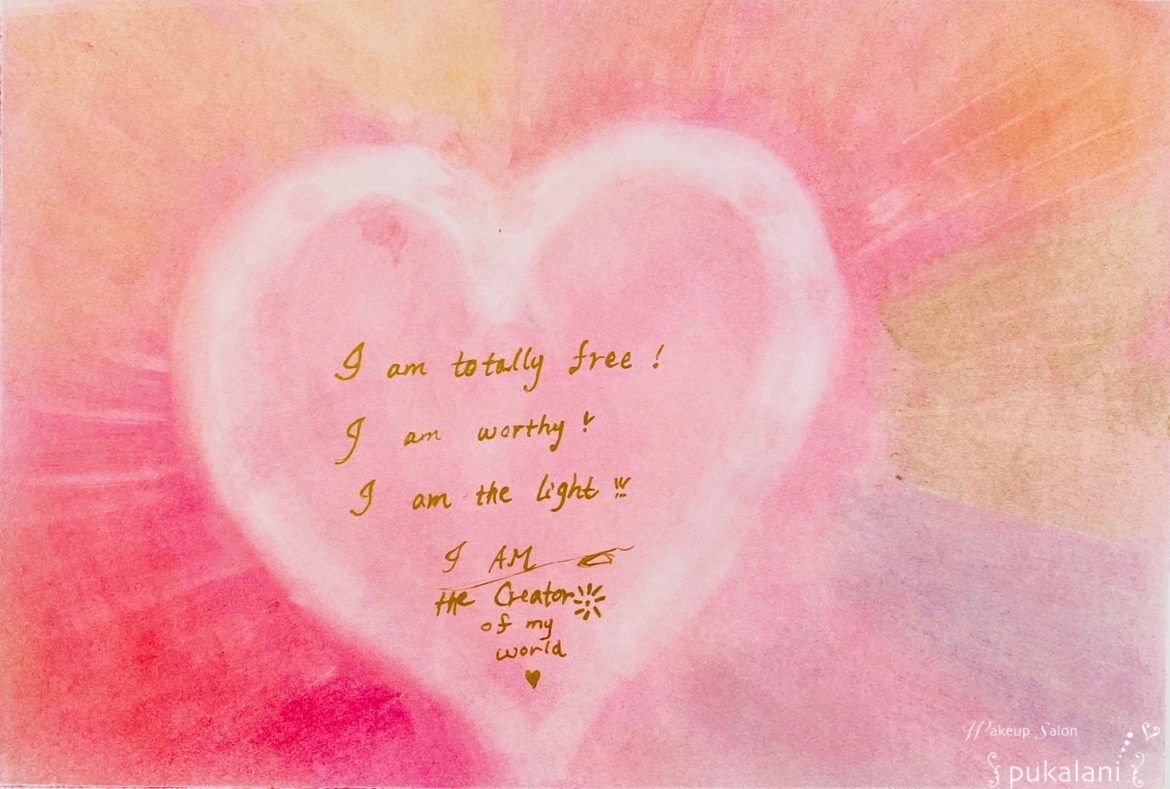 I am totally free !
I am worthy !
I am the light !!!
I AM
the Creator
of my
world
Wakeup Salon
pukalani